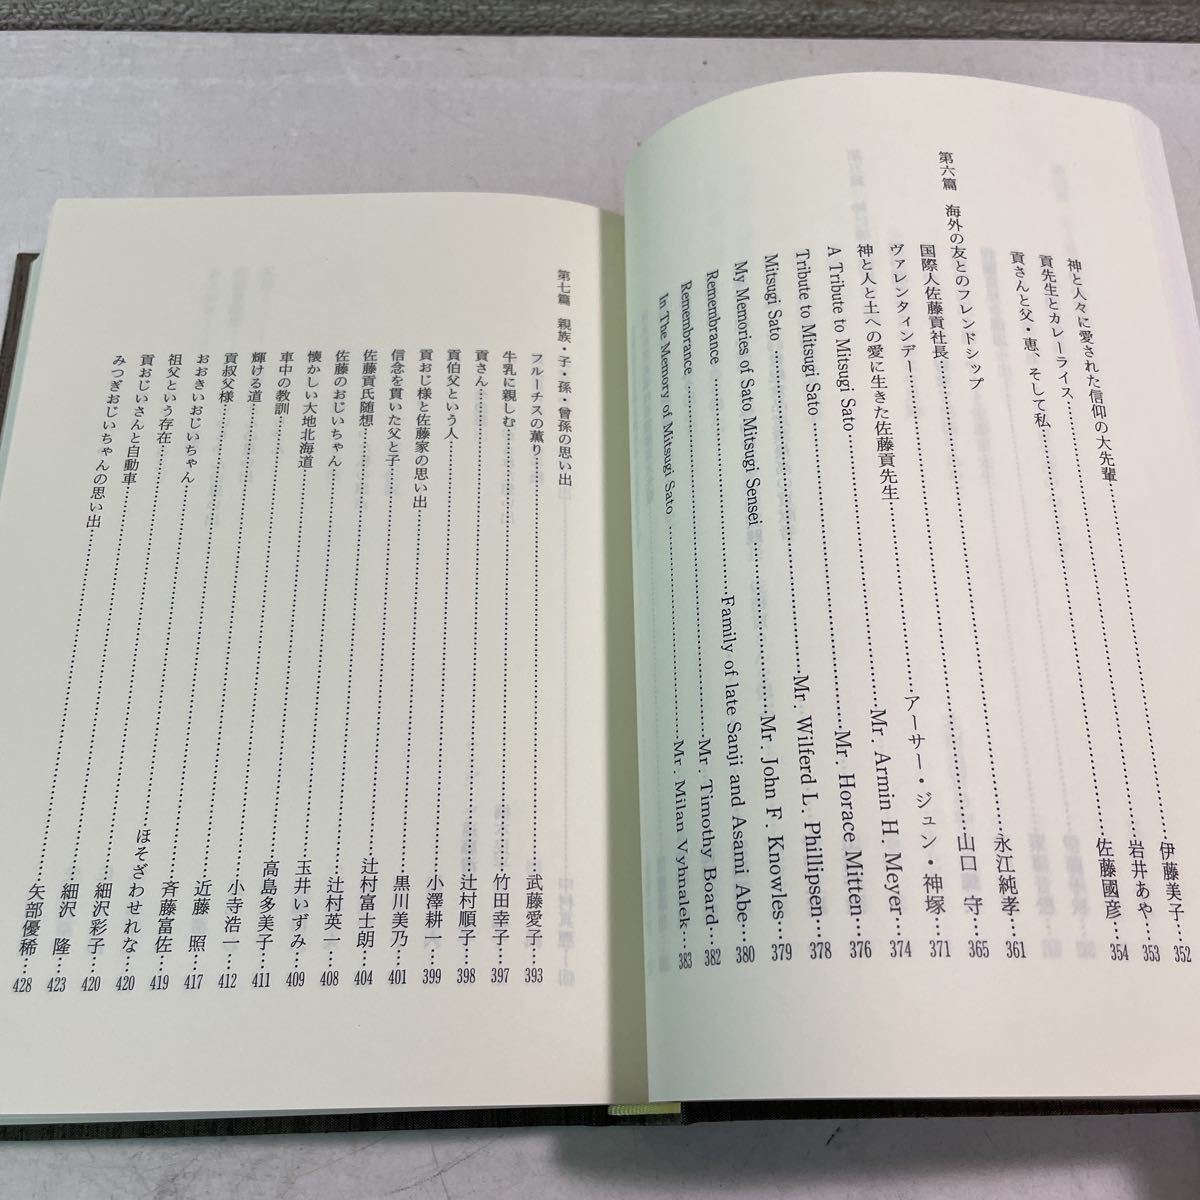 神と人々に愛された信仰の大先輩……伊藤美子…352
貢先生とカレーライス……岩井あや…353
貢さんと父・恵、そして私……佐藤國彦…354
第六篇　海外の友とのフレンドシップ
国際人佐藤貢社長……永江純孝…361
ヴァレンタインデー……山口　守…365
神と人と土への愛に生きた佐藤貢先生……アーサー・ジュン・神塚…371
A Tribute to Mitsugi Sato……Mr. Armin H. Meyer…374
Tribute to Mitsugi Sato……Mr. Horace Mitten…376
Mitsugi Sato……Mr. Wilferd L. Phillipsen…378
My Memories of Sato Mitsugi Sensei……Mr. John F. Knowles…379
Remembrance……Family of late Sanji and Asami Abe…380
Remembrance……Mr. Timothy Board…382
In The Memory of Mitsugi Sato……Mr. Milan Vyhnalek…383
第七篇　親族・子・孫・曾孫の思い出
フルーチスの薫り……武藤愛子…393
牛乳に親しむ……竹田幸子…397
貢さん……辻村順子…398
貢伯父という人……小澤耕一…399
貢おじ様と佐藤家の思い出……黒川美乃…401
信念を貫いた父と子……辻村富士朗…404
佐藤貢氏随想……辻村英一…408
佐藤のおじいちゃん……玉井いずみ…409
懐かしい大地北海道……高島多美子…411
車中の教訓……小寺浩一…412
輝ける道……近藤　照…417
貢叔父様……斉藤富佐…419
おおきいおじいちゃん……ほそざわせれな…420
祖父という存在……細沢彩子…420
貢おじいさんと自動車……細沢　隆…423
みつぎおじいちゃんの思い出……矢部優稀…428